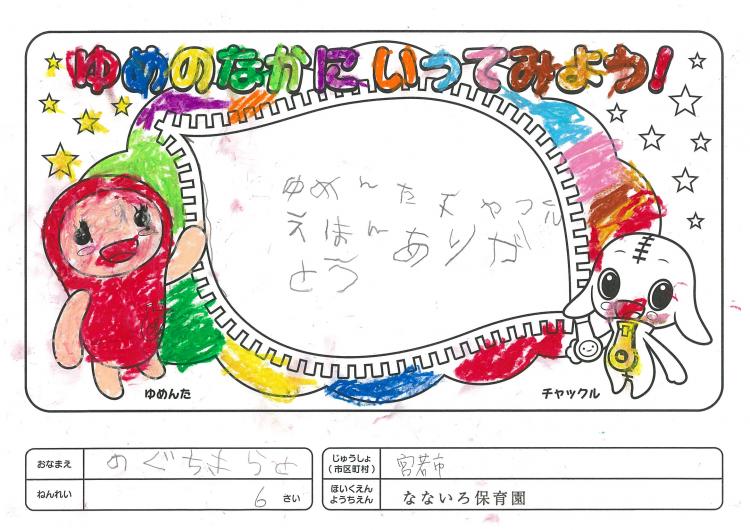 ゆめのなかにいってみよう!
ゆめんたまやつん
えほんありが
とう
ゆめんた
チャックル
おなまえ
じゅうしょ
(市区町村)
宮若市
ねんれい
6 さい
ほいくえん
ようちえん
なないろ保育園